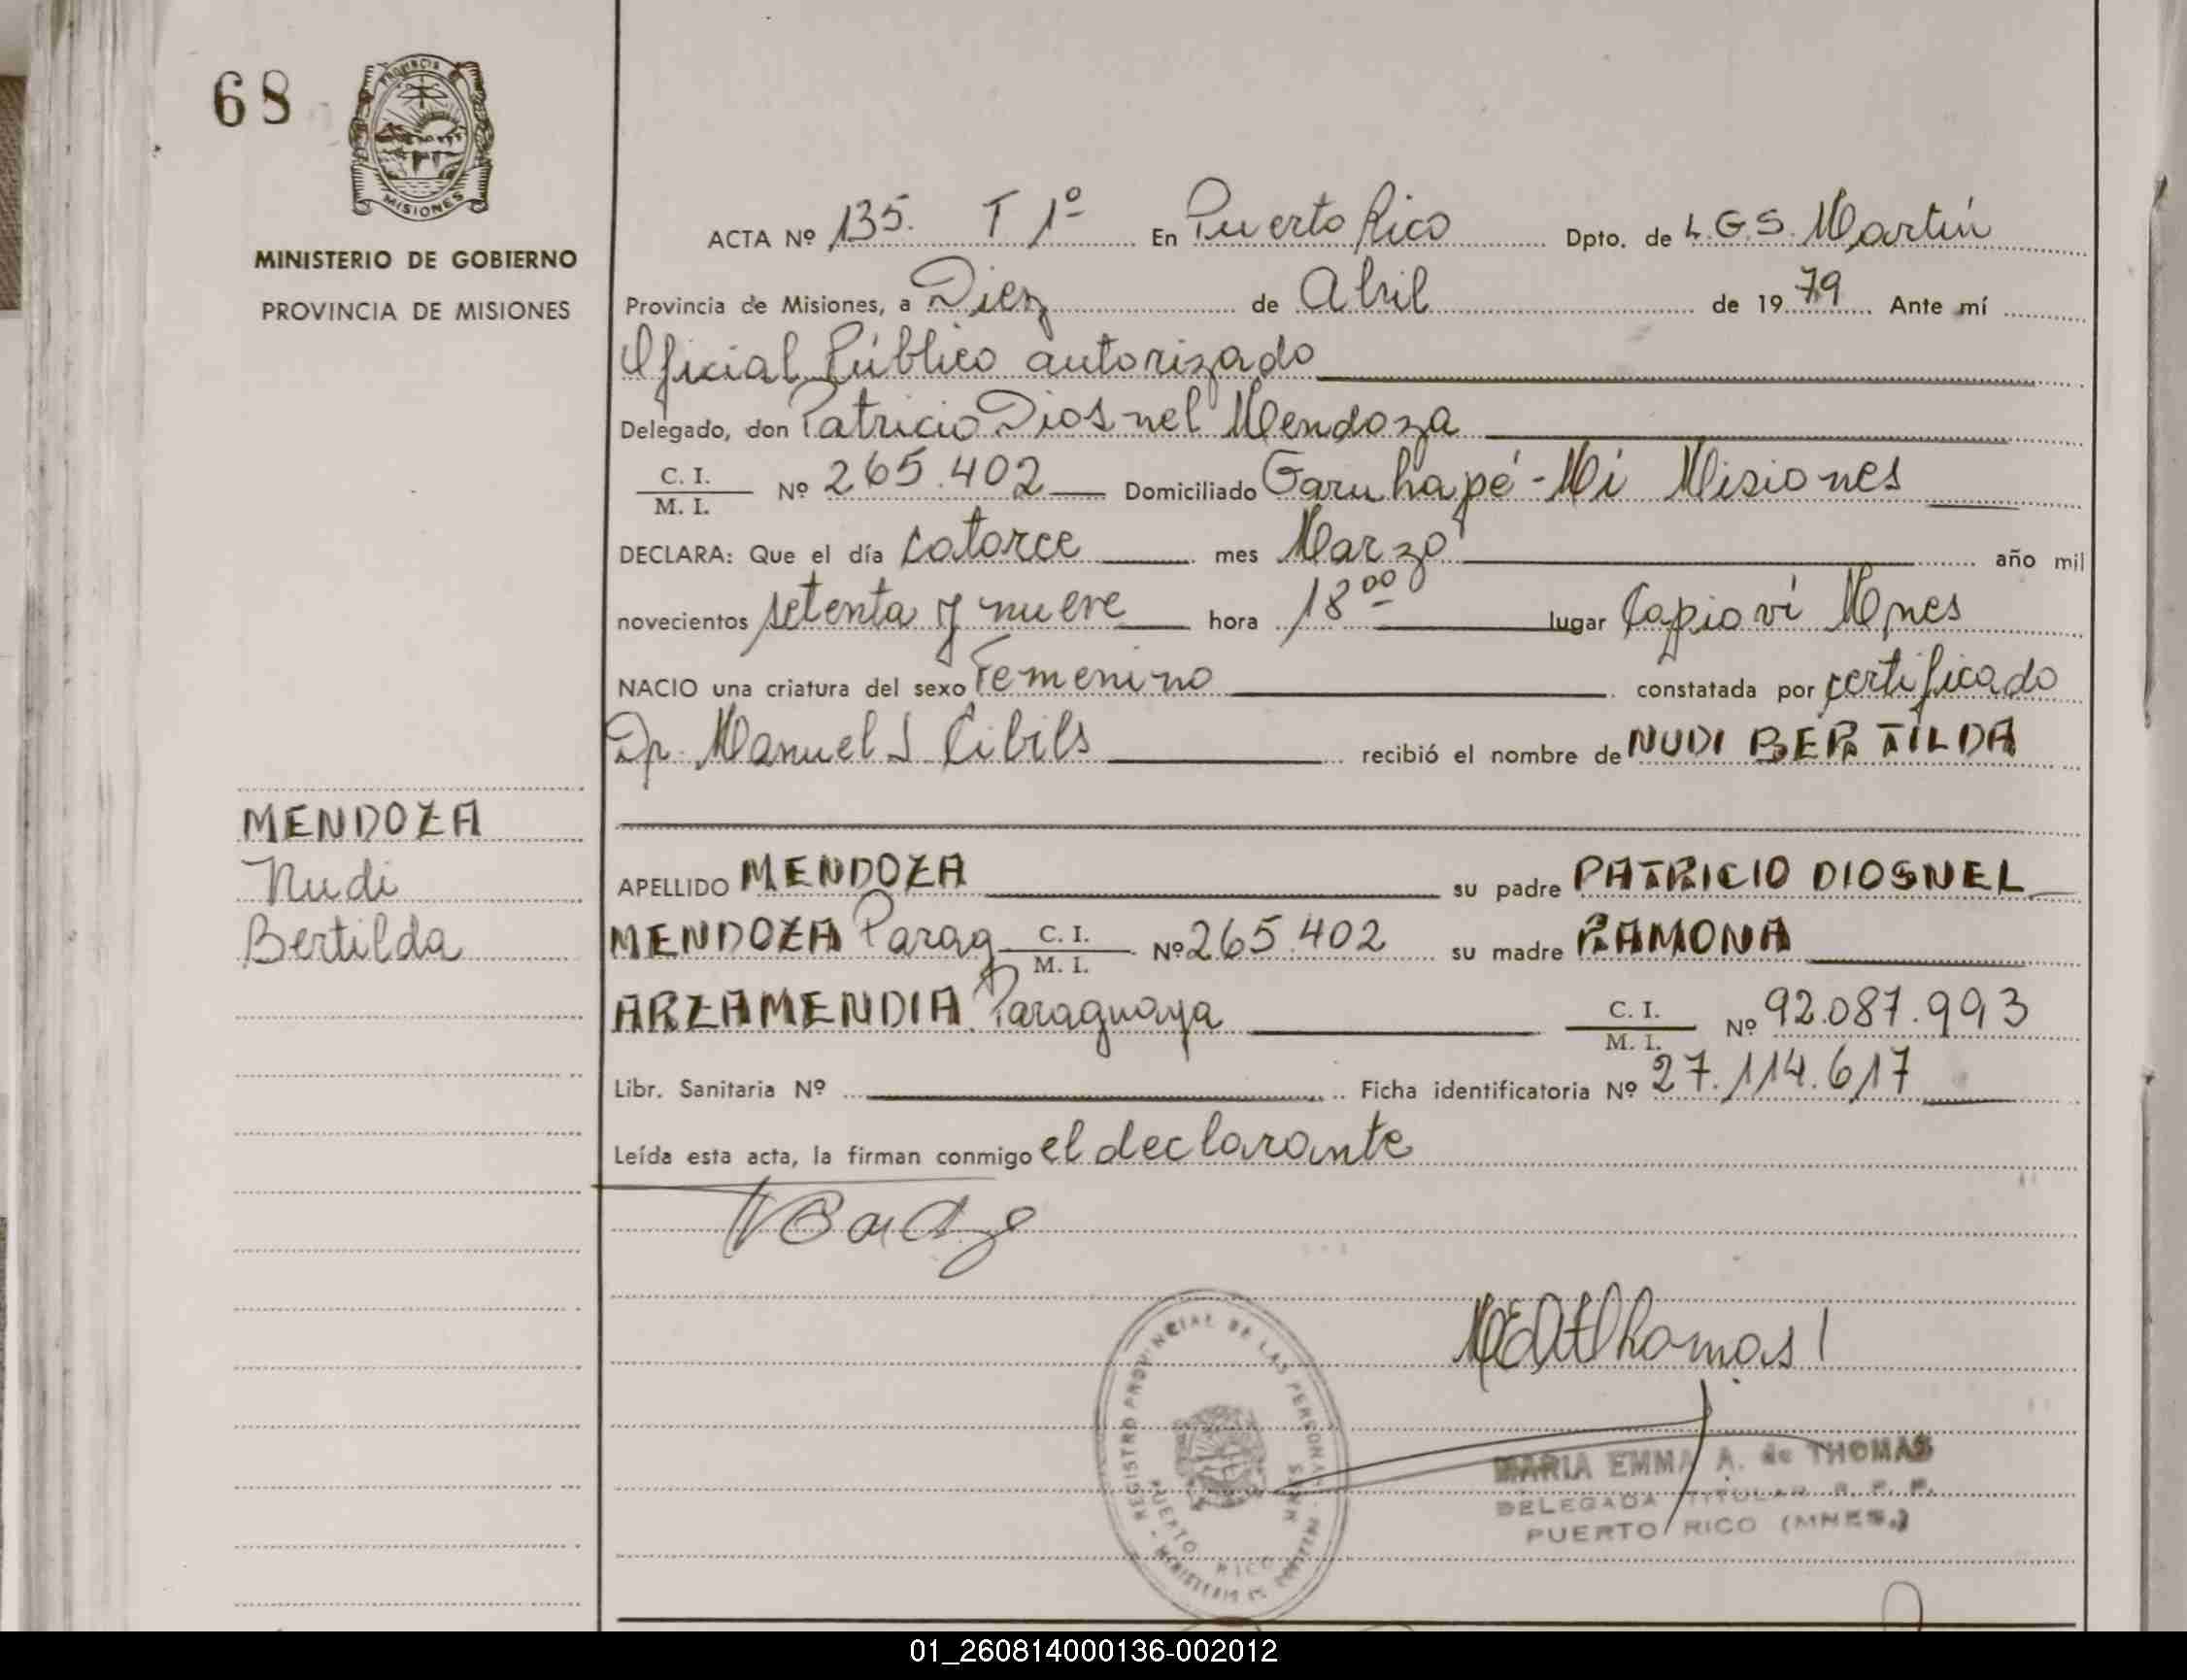 68
PROVINCIA
MISIONES
MINISTERIO DE GOBIERNO
PROVINCIA DE MISIONES
ACTA Nº 135. T 1º En Puerto Rico Dpto. de L.G.S. Martín
Provincia de Misiones, a Diez de Abril de 1979 Ante mí
Oficial Público autorizado
Delegado, don Patricio Diosnel Mendoza
C. I.
M. I. Nº 265.402 Domiciliado Garuhapé-Mi Misiones
DECLARA: Que el día catorce mes Marzo año mil
novecientos setenta y nueve hora 18 00 lugar Capioví Mnes
NACIO una criatura del sexo Femenino constatada por certificado
Dr. Manuel J Cibils recibió el nombre de NUDI BERTILDA
MENDOZA
Nudi
Bertilda
APELLIDO MENDOZA su padre PATRICIO DIOSNEL
MENDOZA Parag C. I. M. I. Nº 265.402 su madre RAMONA
ARZAMENDIA Paraguaya C. I. M. I. Nº 92.087.993
Libr. Sanitaria Nº Ficha identificatoria Nº 27.114.617
Leída esta acta, la firman conmigo el declarante
REGISTRO PROVINCIAL DE LAS PERSONAS
PUERTO RICO
MNES
MARIA EMMA A. de THOMAS
DELEGADA TITULAR R. P. P.
PUERTO RICO (MNES.)
01_260814000136-002012